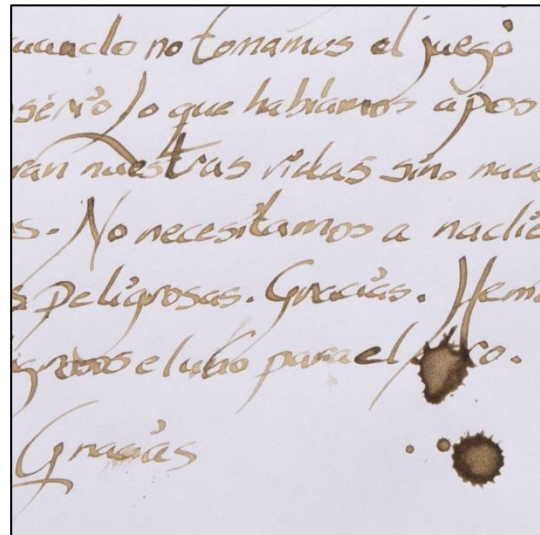 cuando no tomamos el juego
serio lo que habíamos apos
ran nuestras vidas sino nace
s. No necesitamos a nadie
s peligrosas. Gracias. Hem
el para el
Gracias